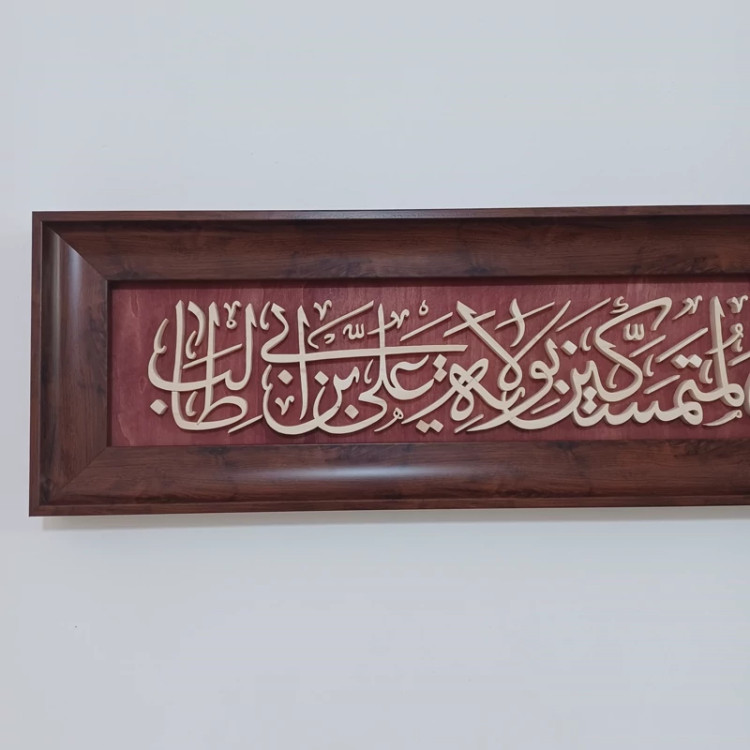 المتمسكين بولاية علي بن ابي طالب